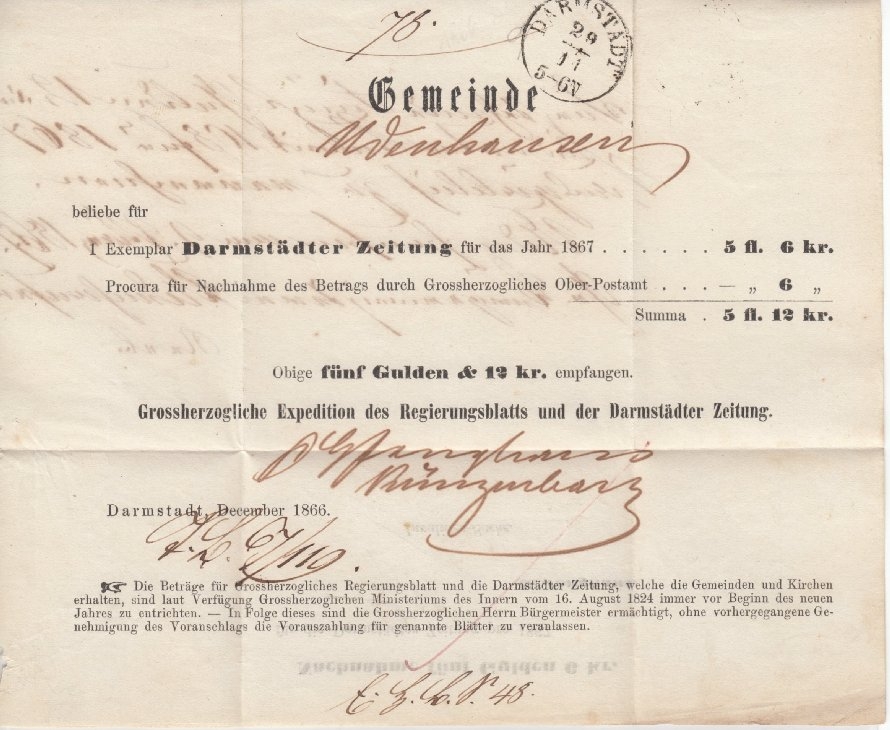 76.
DARMSTADT
29
11
5-6V
Gemeinde
Udenhausen
beliebe für
1 Exemplar Darmstädter Zeitung für das Jahr 1867 . . . . . . 5 fl. 6 kr.
Procura für Nachnahme des Betrags durch Grossherzogliches Ober-Postamt . . . — „ 6 „
Summa . 5 fl. 12 kr.
Obige fünf Gulden & 12 kr. empfangen.
Grossherzogliche Expedition des Regierungsblatts und der Darmstädter Zeitung.
Darmstadt, December 1866.
Die Beträge für Grossherzogliches Regierungsblatt und die Darmstädter Zeitung, welche die Gemeinden und Kirchen
erhalten, sind laut Verfügung Grossherzoglichen Ministeriums des Innern vom 16. August 1824 immer vor Beginn des neuen
Jahres zu entrichten. — In Folge dieses sind die Grossherzoglichen Herrn Bürgermeister ermächtigt, ohne vorhergegangene Ge-
nehmigung des Voranschlags die Vorauszahlung für genannte Blätter zu veranlassen.
48.